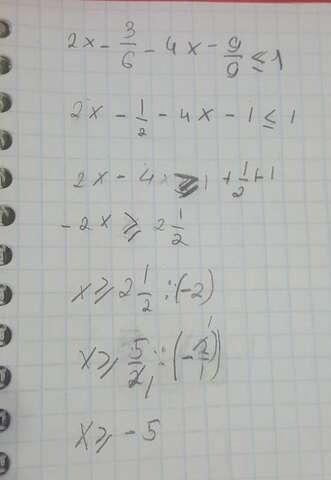 2x - 3/6 - 4x - 9/9 ≤ 1
2x - 1/2 - 4x - 1 ≤ 1
2x - 4x ≥ 1 + 1/2 + 1
-2x ≥ 2 1/2
x ≥ 2 1/2 : (-2)
x ≥ 5/2 : (-2/1)
x ≥ -5